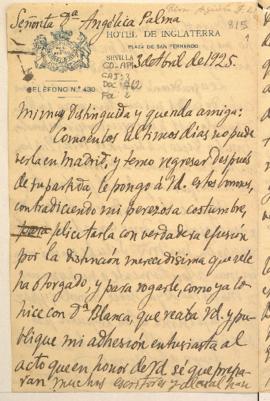 Señorita Dª Angélica Palma
815
HOTEL DE INGLATERRA
PLAZA DE SAN FERNANDO
SEVILLA
3 de Abril de 1925.
TELÉFONO N.º 430
CAJ: 3
DOC
FOL: 2
Mi muy distinguida y querida amiga:
Como en los últimos días no pude
verla en Madrid, y temo regresar después
de su partida, le pongo a Vd. estos renglones,
contradiciendo mi perezosa costumbre,
para felicitarla con verdadera efusión
por la distinción merecidísima que se le
ha otorgado, y para rogarle, como ya lo
hice con Dª Blanca, que reciba Vd. y pu-
blique mi adhesión entusiasta al
acto que en honor de Vd. sé que prepa-
ran muchos escritores y